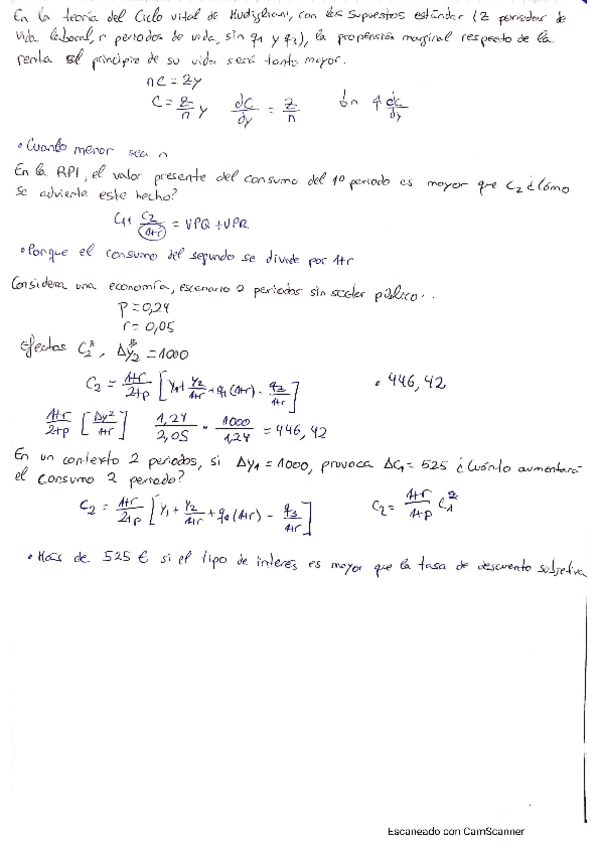 En la teoría del Ciclo vital de Modigliani, con los supuestos estándar (Z periodos de
vida laboral, n periodos de vida, sin q1 y q3), la propensión marginal respecto de la
renta al principio de su vida será tanto mayor.
nC = Zy
C = Z/n y   dC/dy = Z/n   ↓n ↑ dC/dy
• Cuanto menor sea n
En la RPI, el valor presente del consumo del 1º periodo es mayor que C2 ¿Cómo
se advierte este hecho?
C1 + C2/(1+r) = VPQ + VPR
• Porque el consumo del segundo se divide por 1+r
Considera una economía, escenario 2 periodos sin sector público..
p = 0,24
r = 0,05
Efectos C2*, Δy2 = 1000
C2 = 1+r/2+p [y1 + y2/1+r + q1(1+r) - q3/1+r]   • 446,42
1+r/2+p [Δy2/1+r]   1,24/2,05 · 1000/1,24 = 446,42
En un contexto 2 periodos, si Δy1 = 1000, provoca ΔC1 = 525 ¿Cuánto aumentará
el consumo 2 periodo?
C2 = 1+r/2+p [y1 + y2/1+r + q1(1+r) - q3/1+r]   C2 = 1+r/1+p C1
• Más de 525 € si el tipo de interés es mayor que la tasa de descuento subjetiva
Escaneado con CamScanner